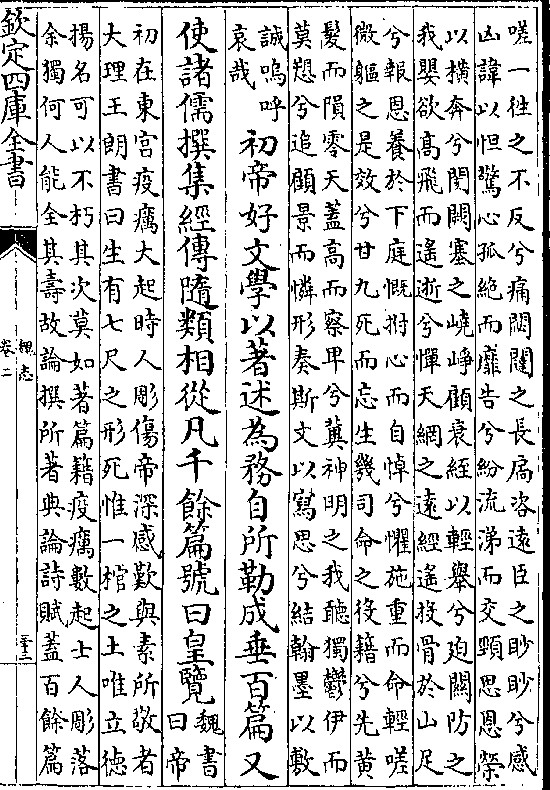 嗟一往之不反兮痛閟闥之長扃咨遠臣之眇眇兮感
凶諱以怛驚心孤絶而靡告兮紛流涕而交頸思恩榮
以橫奔兮閡闕塞之嶢崢顧衰絰以輕舉兮迫關防之
我嬰欲髙飛而遥逝兮憚天網之遠經遥投骨於山足
兮報恩養於下庭慨拊心而自悼兮懼施重而命輕嗟
微軀之是效兮甘九死而忘生幾司命之役籍兮先黄
髮而隕零天蓋高而察卑兮冀神明之我聽獨鬱伊而
莫愬兮追顧景而憐形奏斯文以寫思兮結翰墨以敷
誠嗚呼
哀哉
初帝好文學以著述為務自所勒成垂百篇又
使諸儒撰集經傳隨類相從凡千餘篇號曰皇覽
魏書
曰帝
初在東宫疫癘大起時人彫傷帝深感歎與素所敬者
大理王朗書曰生有七尺之形死惟一棺之土唯立徳
揚名可以不朽其次莫如著篇籍疫癘數起士人彫落
余獨何人能全其壽故論撰所著典論詩賦蓋百餘篇
欽定四庫全書
魏志
卷二